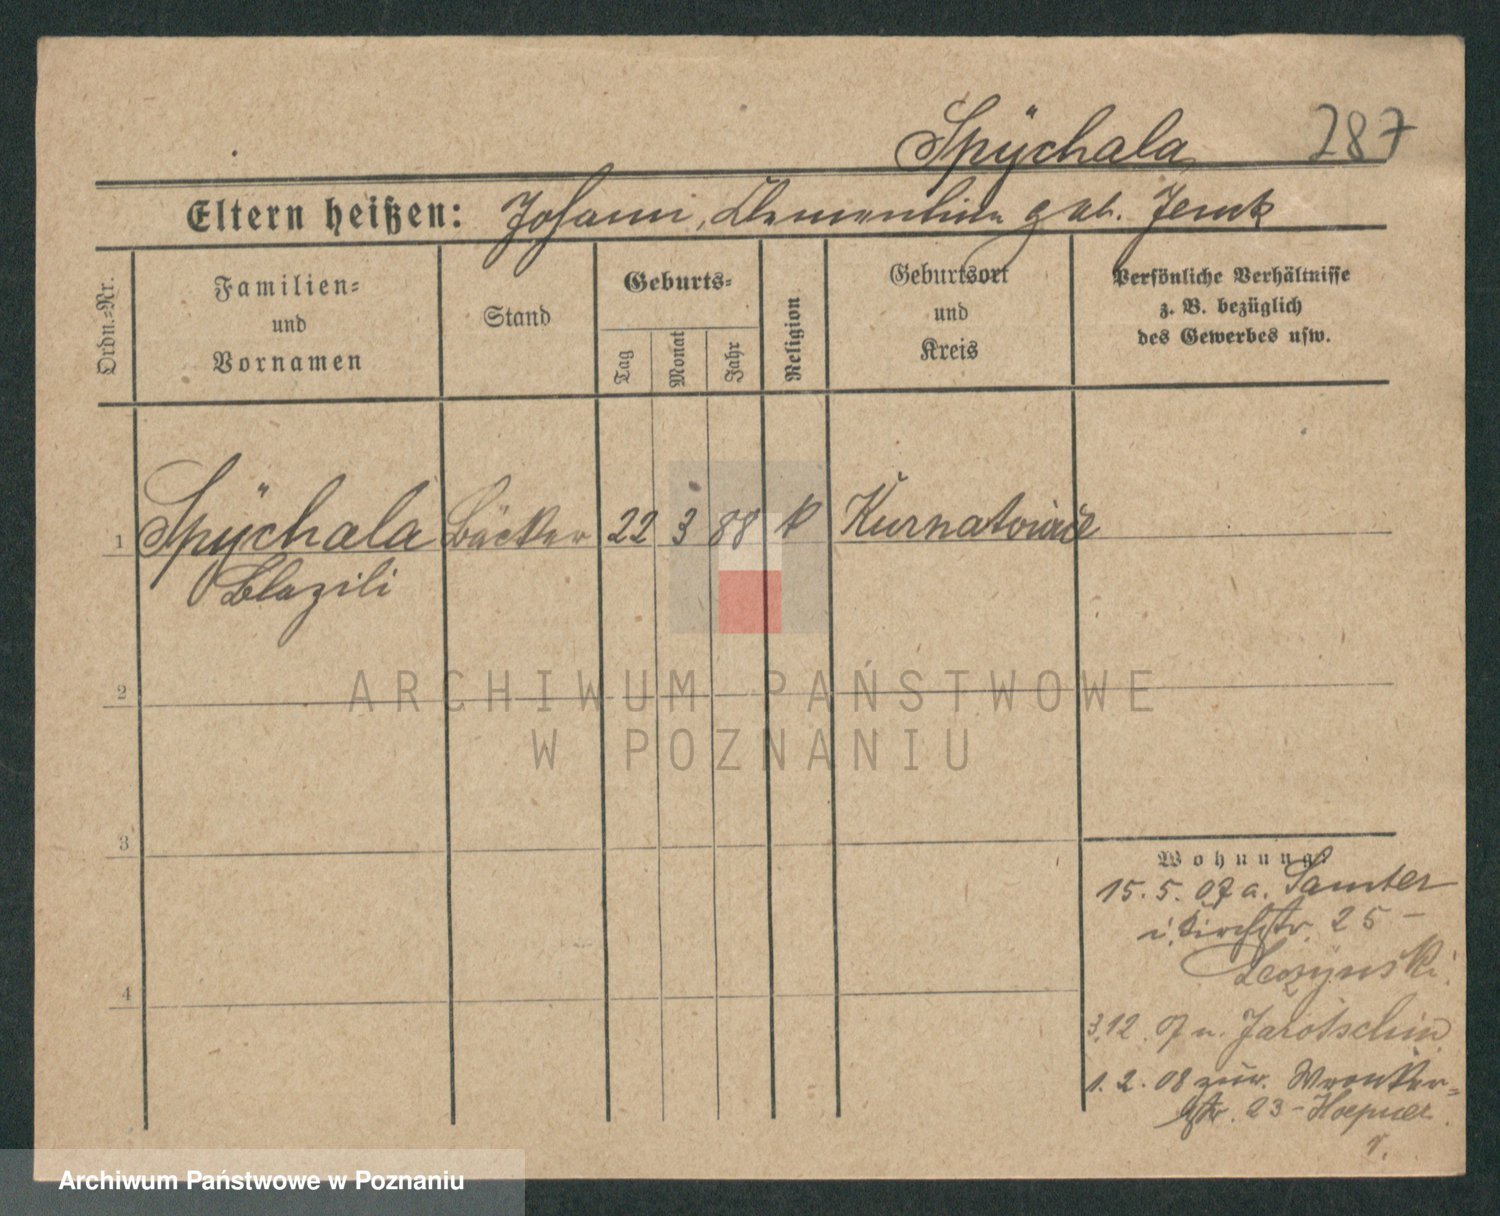 Spÿchala 287
Eltern heißen: Johann, Clementine geb. Jenek
Ordn.=Nr.
Familien=
und
Vornamen
Stand
Geburts=
Tag
Monat
Jahr
Religion
Geburtsort
und
Kreis
Persönliche Verhältnisse
z. B. bezüglich
des Gewerbes usw.
1 Spÿchala Bäcker 22 3 88 k Kurnatowice
Blazili
2
3
4
Wohnung:
15. 5. 07 a. Samter
i. Kirchstr. 25 -
Leczÿnski.
3. 12. 07 n. Jarotschin
1. 2. 08 zur. Wronker=
str. 23 - Hoepner.
v.
ARCHIWUM PAŃSTWOWE
W POZNANIU
Archiwum Państwowe w Poznaniu